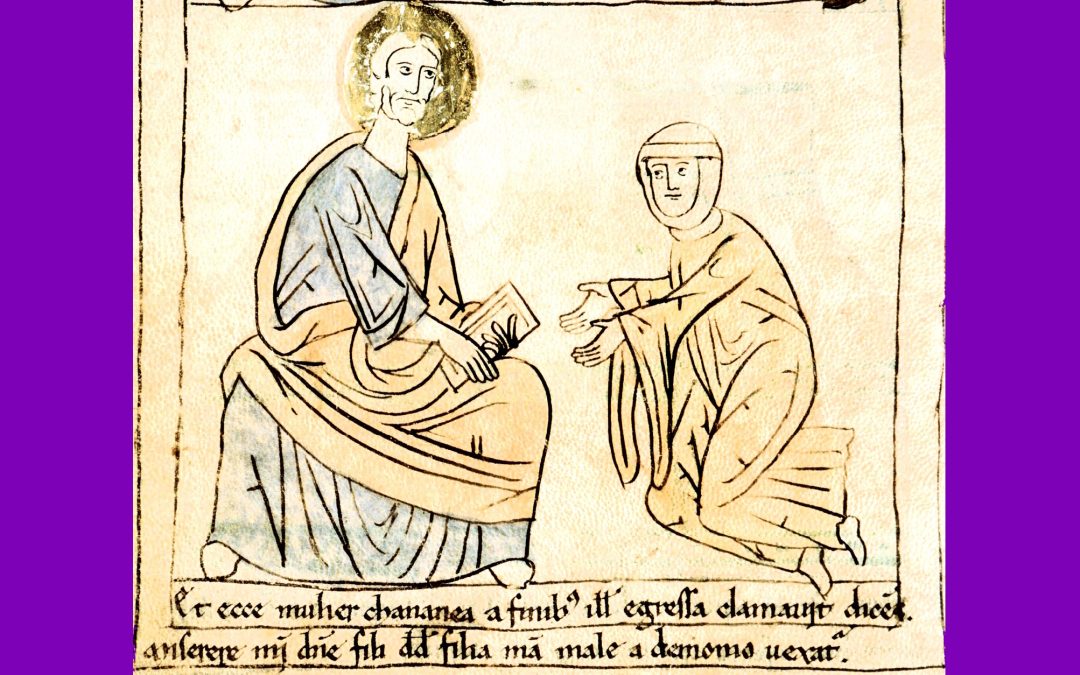 Et ecce mulier chananea a finibꝰ ill̅ egressa clamauit dice̅s.
miserere mi̅ dn̅e fili dd̅ filia me̅a male a demonio uexat᷑.